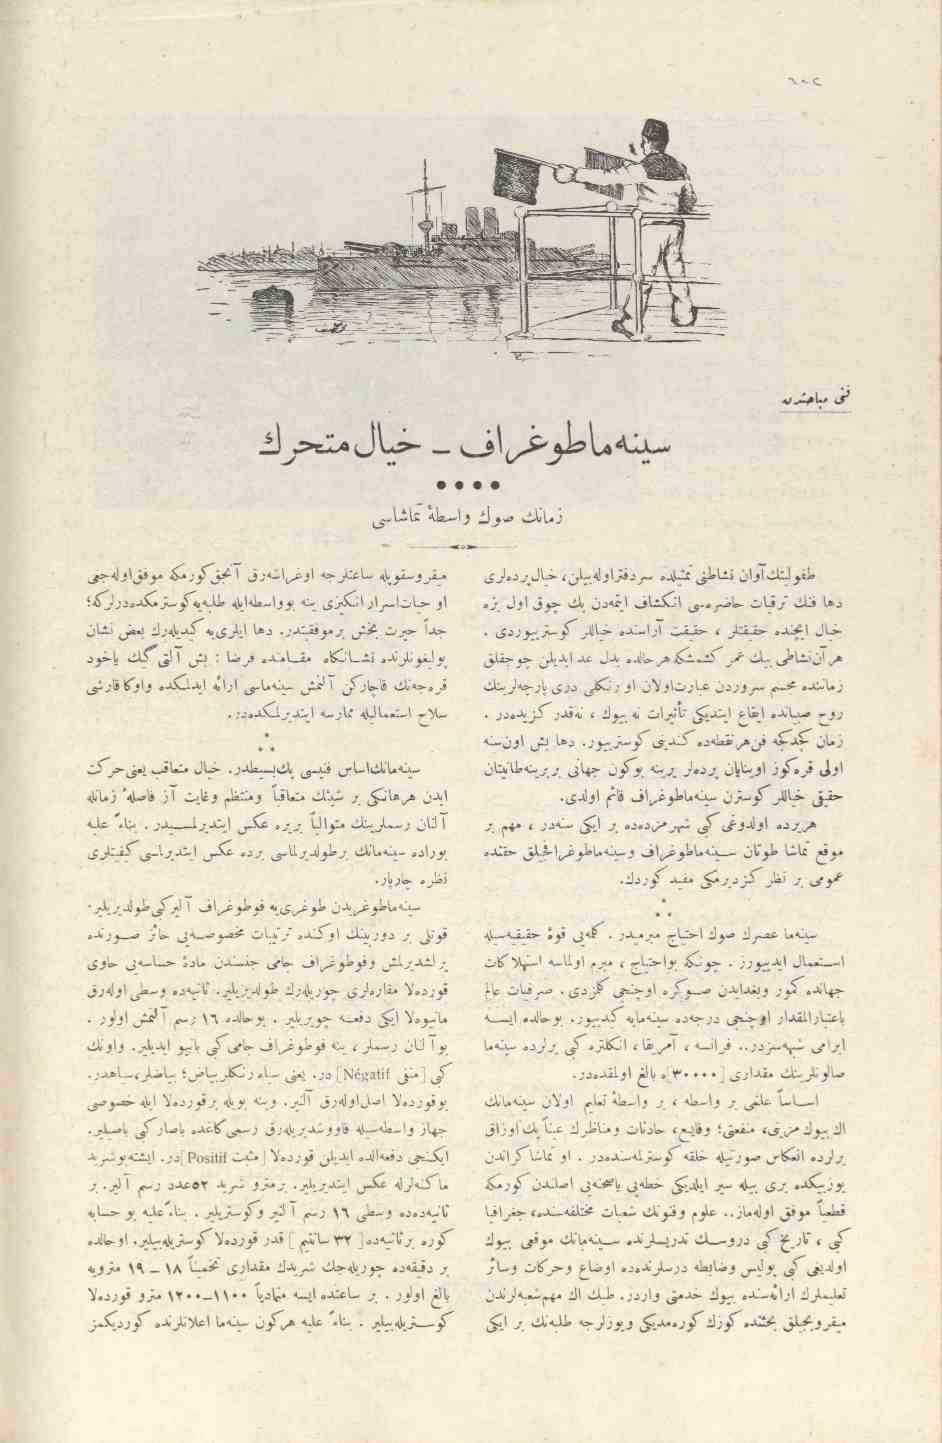 ٦٠٢
فنی مباحثدن
سینه‌ماطوغراف ــ خیال متحرك
زمانك صوك واسطهٔ تماشاسی
طفولیتك آوان نشاطنی تمثیلده سردفتر اوله‌بیلن، خیال پرده‌لری
دها فنك ترقیات حاضره‌سی انكشاف ایتمه‌دن پك چوق اول بزه
خیال ایچنده حقیقتلر ، حقیقت آراسنده خیاللر كوستریوردی .
هر آن نشاطی بیك عمر كشمشكه هر حالده بدل عد ایدیلن چوجقلق
زماننده مجسم سروردن عبارت اولان او رنكلی دری پارچه‌لرینك
روح صبیانده ایقاع ایتدیكی تأثیرات نه بیوك ، نه‌قدر گزیده‌در .
زمان كچدكجه فن هر نقطه‌ده كندینی كوستریور. دها بش اون سنه
اولی قره‌كوز اوینایان پرده‌لر یرینه بوكون جهانی بربرینه طانیتان
حقیقی خیاللر كوسترن سینه‌ماطوغراف قائم اولدی.
هر یرده اولدوغی كبی شهرمزده‌ده بر ایكی سنه‌در ، مهم بر
موقع تماشا طوتان سینه‌ماطوغراف وسینه‌ماطوغرافجیلق حقنده
عمومی بر نظر كزدیرمكی مفید كوردك.
سینه‌ما عصرك صوك احتیاج مبرمیدر . كلمه‌یی قوهٔ حقیقیه‌سیله
استعمال ایدییورز . چونكه بو احتیاج ، مبرم اولماسه استهلاكات
جهانده كمور وبغدایدن صوكره اوچنجی كلمزدی . صرفیات عالم
باعتبار المقدار اوچنجی درجه‌ده سینه‌مایه كیدییور. بو حالده ایسه
ابرامی شبهه‌سزدر.. فرانسه ، آمریقا ، انكلتره كبی یرلرده سینه‌ما
صالونلرینك مقداری [٣٠٠٠٠]ه بالغ اولمقده‌در.
اساساً علمی بر واسطه ، بر واسطهٔ تعلیم اولان سینه‌مانك
اك بیوك مزیتی، منفعتی؛ وقایع، حادثات ومناظرك عیناً پك اوزاق
یرلرده انعكاس صورتیله خلقه كوسترلمه‌سنده‌در . او تماشاكراندن
یوزبیكده بری بیله سیر ایلدیكی خطه‌یی یاصحنه‌یی اصلندن كورمكه
قطعیاً موفق اوله‌ماز.. علوم وفنونك شعبات مختلفه‌سنده، جغرافیا
كبی ، تاریخ كبی دروسك تدریسلرنده سینه‌مانك موقعی بیوك
اولدیغی كبی پولیس وضابطه درسلرنده‌ده اوضاع وحركات وسائر
تعلیملرك ارائه‌سنده بیوك خدمتی واردر. طبك اك مهم شعبه‌لرندن
میقروبجیلق بحثنده كوزك كوره‌مدیكی ویوزلرجه طلبه‌نك بر ایكی
میقروسقوپله ساعتلرجه اوغراشه‌رق آنجق كورمكه موفق اوله‌جغی
او حیات اسرار انكیزی ینه بو واسطه ایله طلبه‌یه كوسترمكده‌درلر كه؛
جداً حیرت بخش بر موفقیتدر. دها ایلری‌یه كیدیله‌رك بعض نشان
پولیغونلرنده نشانكاه مقامنده فرضا : بش آلتی گیك یاخود
قره‌جه‌نك قاچاركن آلنمش سینه‌ماسی ارائه ایدلمكده واوكا قارشی
سلاح استعمالیله ممارسه ایتدیرلمكده‌در.
سینه‌مانك اساس فنیسی پك بسیطدر. خیال متعاقب یعنی حركت
ایدن هرهانكی بر شیئك متعاقباً ومنتظم وغایت آز فاصلهٔ زمانله
آلنان رسملرینك متوالیاً بر یره عكس ایتدیرلمسیدر . بناءً علیه
بوراده سینه‌مانك بر طولدیرلماسی برده عكس ایتدیرلمسی كیفیتلری
نظره چارپار.
سینه‌ماطوغریدن طوغری‌یه فوطوغراف آلیر كبی طولدیریلیر.
قوتلی بر دوربینك اوكنده ترتیبات مخصوصه‌یی حائز صورتده
یرلشدیرلمش وفوطوغراف جامی جنسندن مادهٔ حساسه‌یی حاوی
قورده‌لا مقاره‌لری چوریله‌رك طولدیریلیر. ثانیه‌ده وسطی اوله‌رق
مانیوه‌لا ایكی دفعه چوریلیر . بو حالده ١٦ رسم آلنمش اولور .
بو آلنان رسملر ، ینه فوطوغراف جامی كبی بانیو ایدیلیر. واونك
كبی [منفی Négatif] در. یعنی سیاه رنكلر بیاض؛ بیاضلر، سیاهدر.
بو قورده‌لا اصل اوله‌رق آلنیر. وینه بویله بر قورده‌لا ایله خصوصی
جهاز واسطه‌سیله قاووشدیریله‌رق رسمی كاغده باصار كبی باصیلیر.
ایكنجی دفعه الده ایدیلن قورده‌لا [مثبت Positif]در. ایشته بو شرید
ماكنه‌لرله عكس ایتدیریلیر. بر مترو شرید ٥٢عدد رسم آلیر. بر
ثانیه‌ده‌ده وسطی ١٦ رسم آلنیر وكوستریلیر . بناءً علیه بو حسابه
كوره بر ثانیه‌ده[ ٣٢ سانتیم ] قدر قورده‌لا كوستریله‌بیلیر. او حالده
بر دقیقه‌ده چوریله‌جك شریدك مقداری تخمیناً ١٨ ــ ١٩ مترویه
بالغ اولور . بر ساعتده ایسه متمادیاً ١١٠٠ــ١٢٠٠ مترو قورده‌لا
كوستریله‌بیلیر . بناءً علیه هركون سینه‌ما اعلانلرنده كوردیكمز